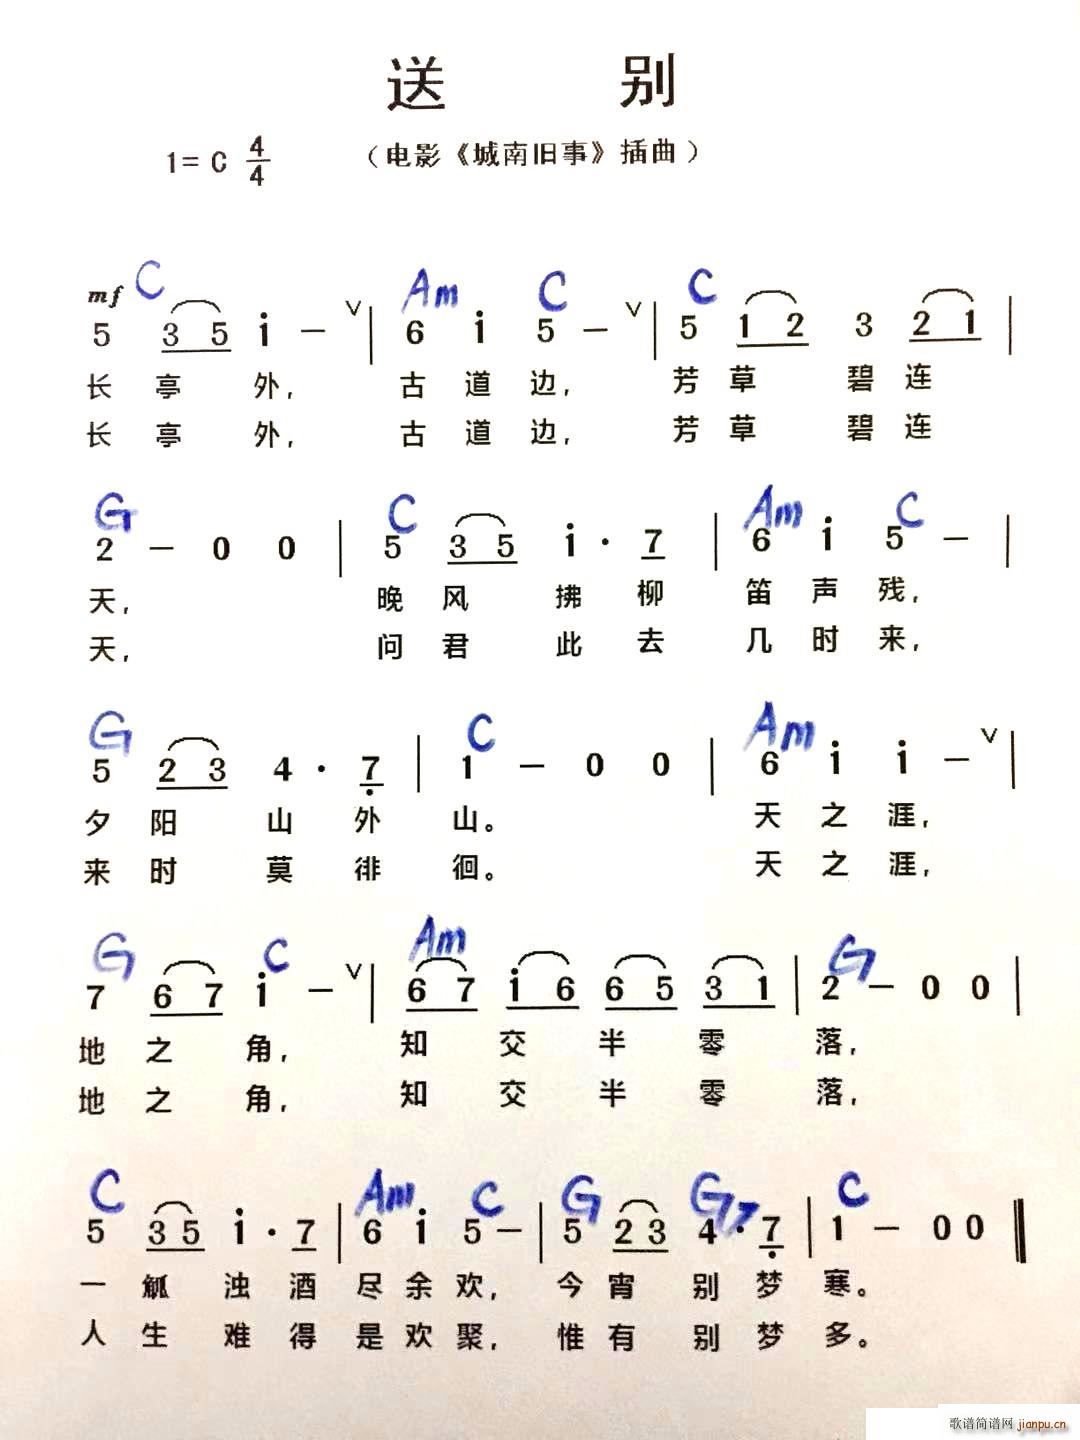 送 别
1=C 4/4 (电影《城南旧事》插曲)
mf C Am C C
5 3 5 i – ∨ | 6 i 5 – ∨ | 5 1 2 3 2 1 |
长 亭 外, 古 道 边, 芳 草 碧 连
长 亭 外, 古 道 边, 芳 草 碧 连
G C Am C
2 – 0 0 | 5 3 5 i · 7 | 6 i 5 – |
天, 晚 风 拂 柳 笛 声 残,
天, 问 君 此 去 几 时 来,
G C Am
5 2 3 4 · 7 | 1 – 0 0 | 6 i i – ∨ |
夕 阳 山 外 山。 天 之 涯,
来 时 莫 徘 徊。 天 之 涯,
G C Am G
7 6 7 i – ∨ | 6 7 i 6 6 5 3 1 | 2 – 0 0 |
地 之 角, 知 交 半 零 落,
地 之 角, 知 交 半 零 落,
C Am C G G7 C
5 3 5 i · 7 | 6 i 5 – | 5 2 3 4 · 7 | 1 – 0 0 ‖
一 觚 浊 酒 尽 余 欢, 今 宵 别 梦 寒。
人 生 难 得 是 欢 聚, 惟 有 别 梦 多。
歌谱简谱网 jianpu.cn